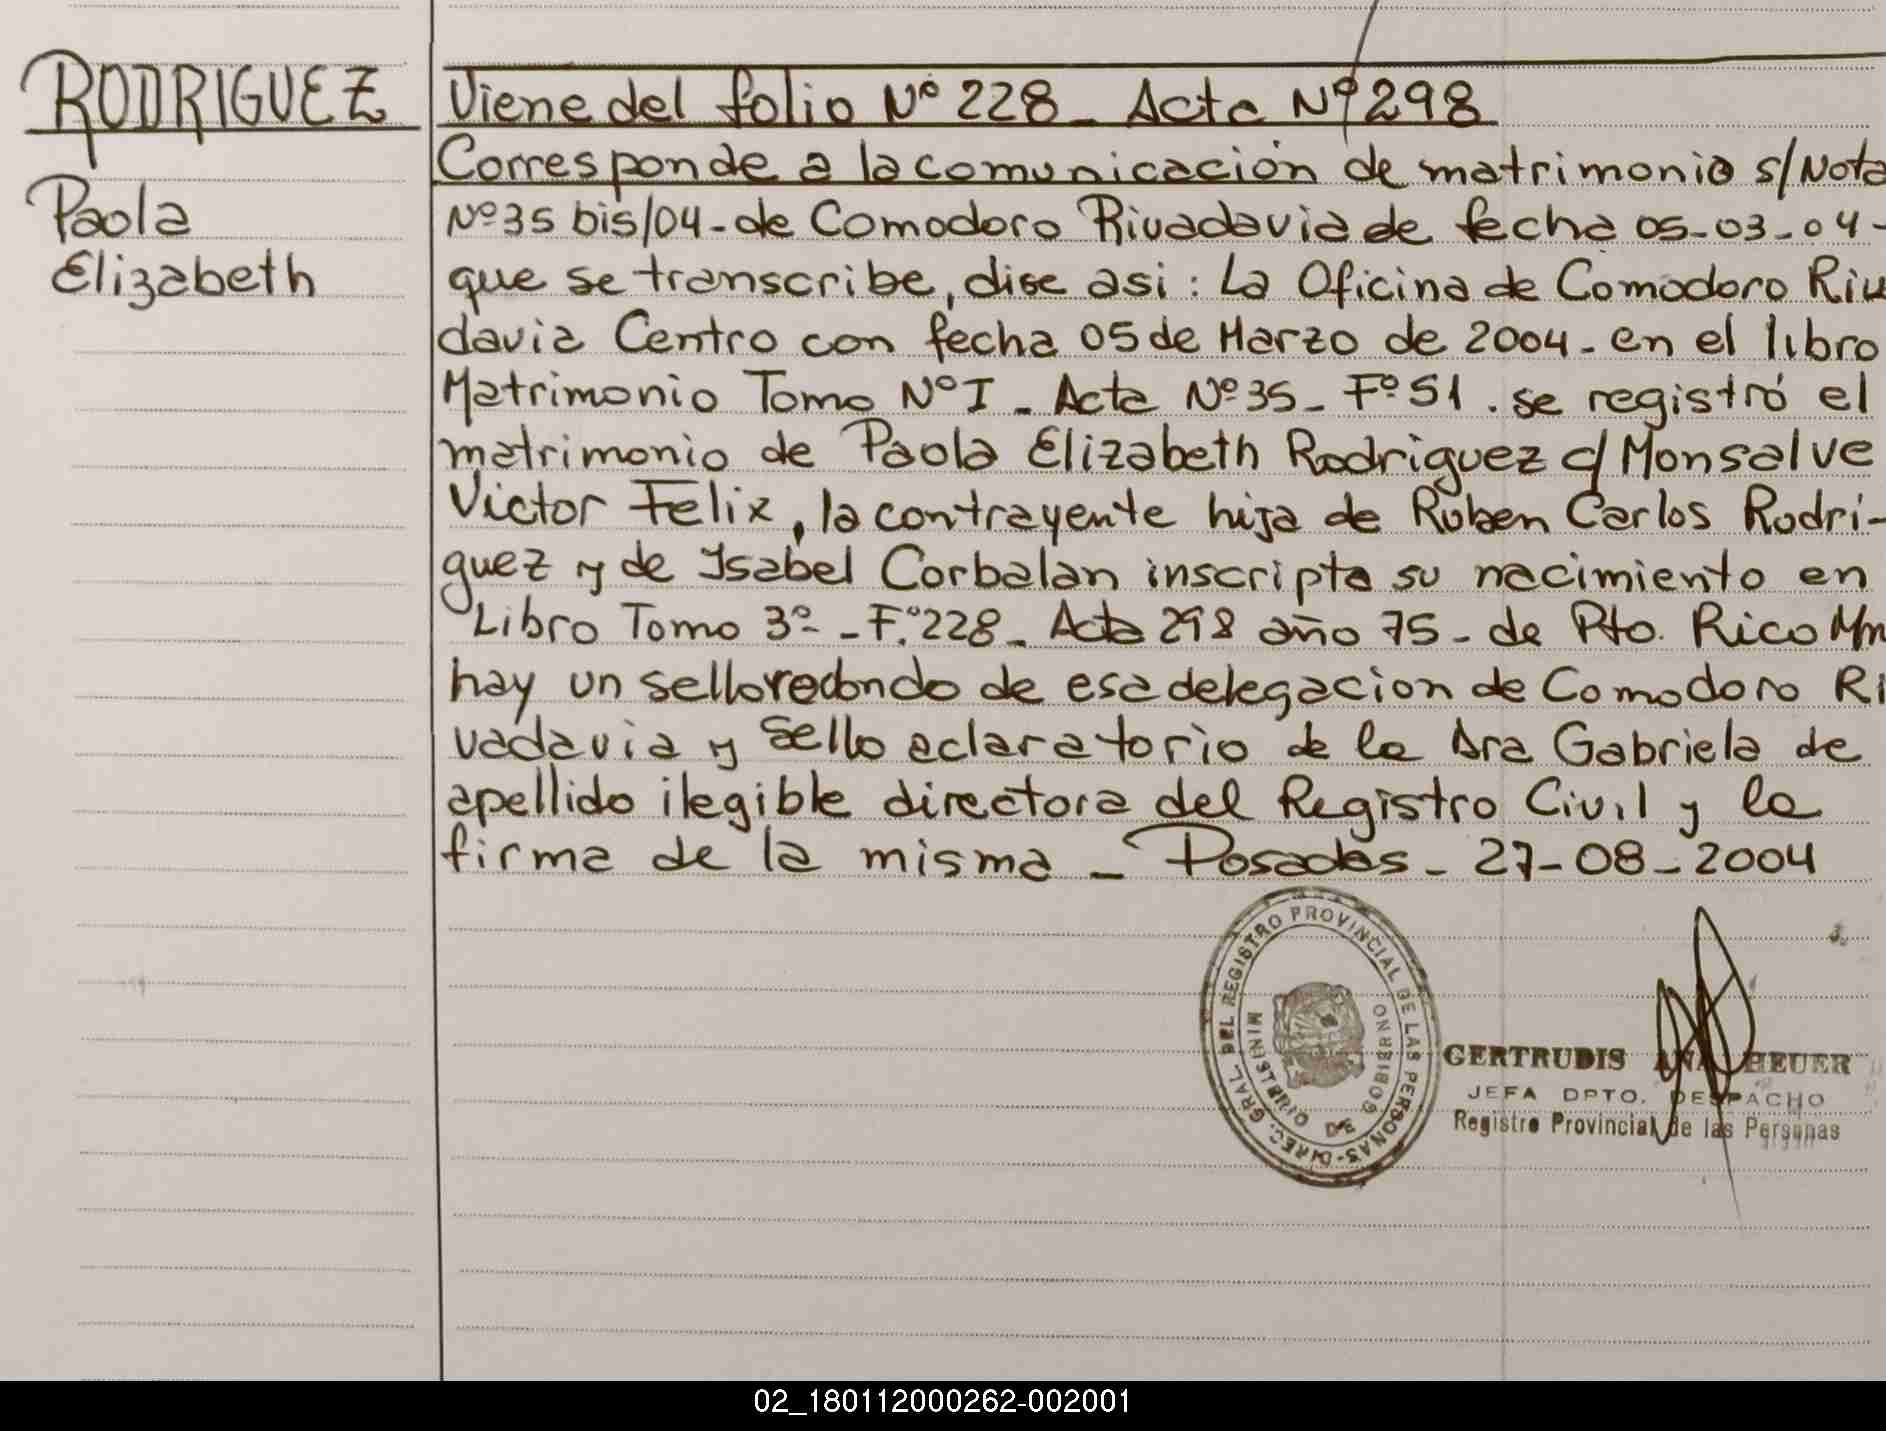 RODRIGUEZ
Paola
Elizabeth
Viene del folio Nº 228 - Acta Nº 298
Corresponde a la comunicación de matrimonio s/Nota
Nº 35 bis/04 - de Comodoro Rivadavia de fecha 05-03-04-
que se transcribe, dise asi: La Oficina de Comodoro Riv
davia Centro con fecha 05 de Marzo de 2004 - en el libro
Matrimonio Tomo Nº I - Acta Nº 35 - Fº 51 . se registró el
matrimonio de Paola Elizabeth Rodriguez c/ Monsalve
Victor Felix, la contrayente hija de Ruben Carlos Rodri-
guez y de Isabel Corbalan inscripta su nacimiento en
Libro Tomo 3º - F.º 228 - Acta 298 año 75 - de Pto. Rico Mn
hay un sello redondo de esa delegacion de Comodoro Ri
vadavia y sello aclaratorio de la Dra Gabriela de
apellido ilegible directora del Registro Civil y la
firma de la misma - Posadas - 27-08-2004
DIREC. GRAL. DEL REGISTRO PROVINCIAL DE LAS PERSONAS-
MINISTERIO DE GOBIERNO
GERTRUDIS ANA HEUER
JEFA DPTO. DESPACHO
Registro Provincial de las Personas
02_180112000262-002001